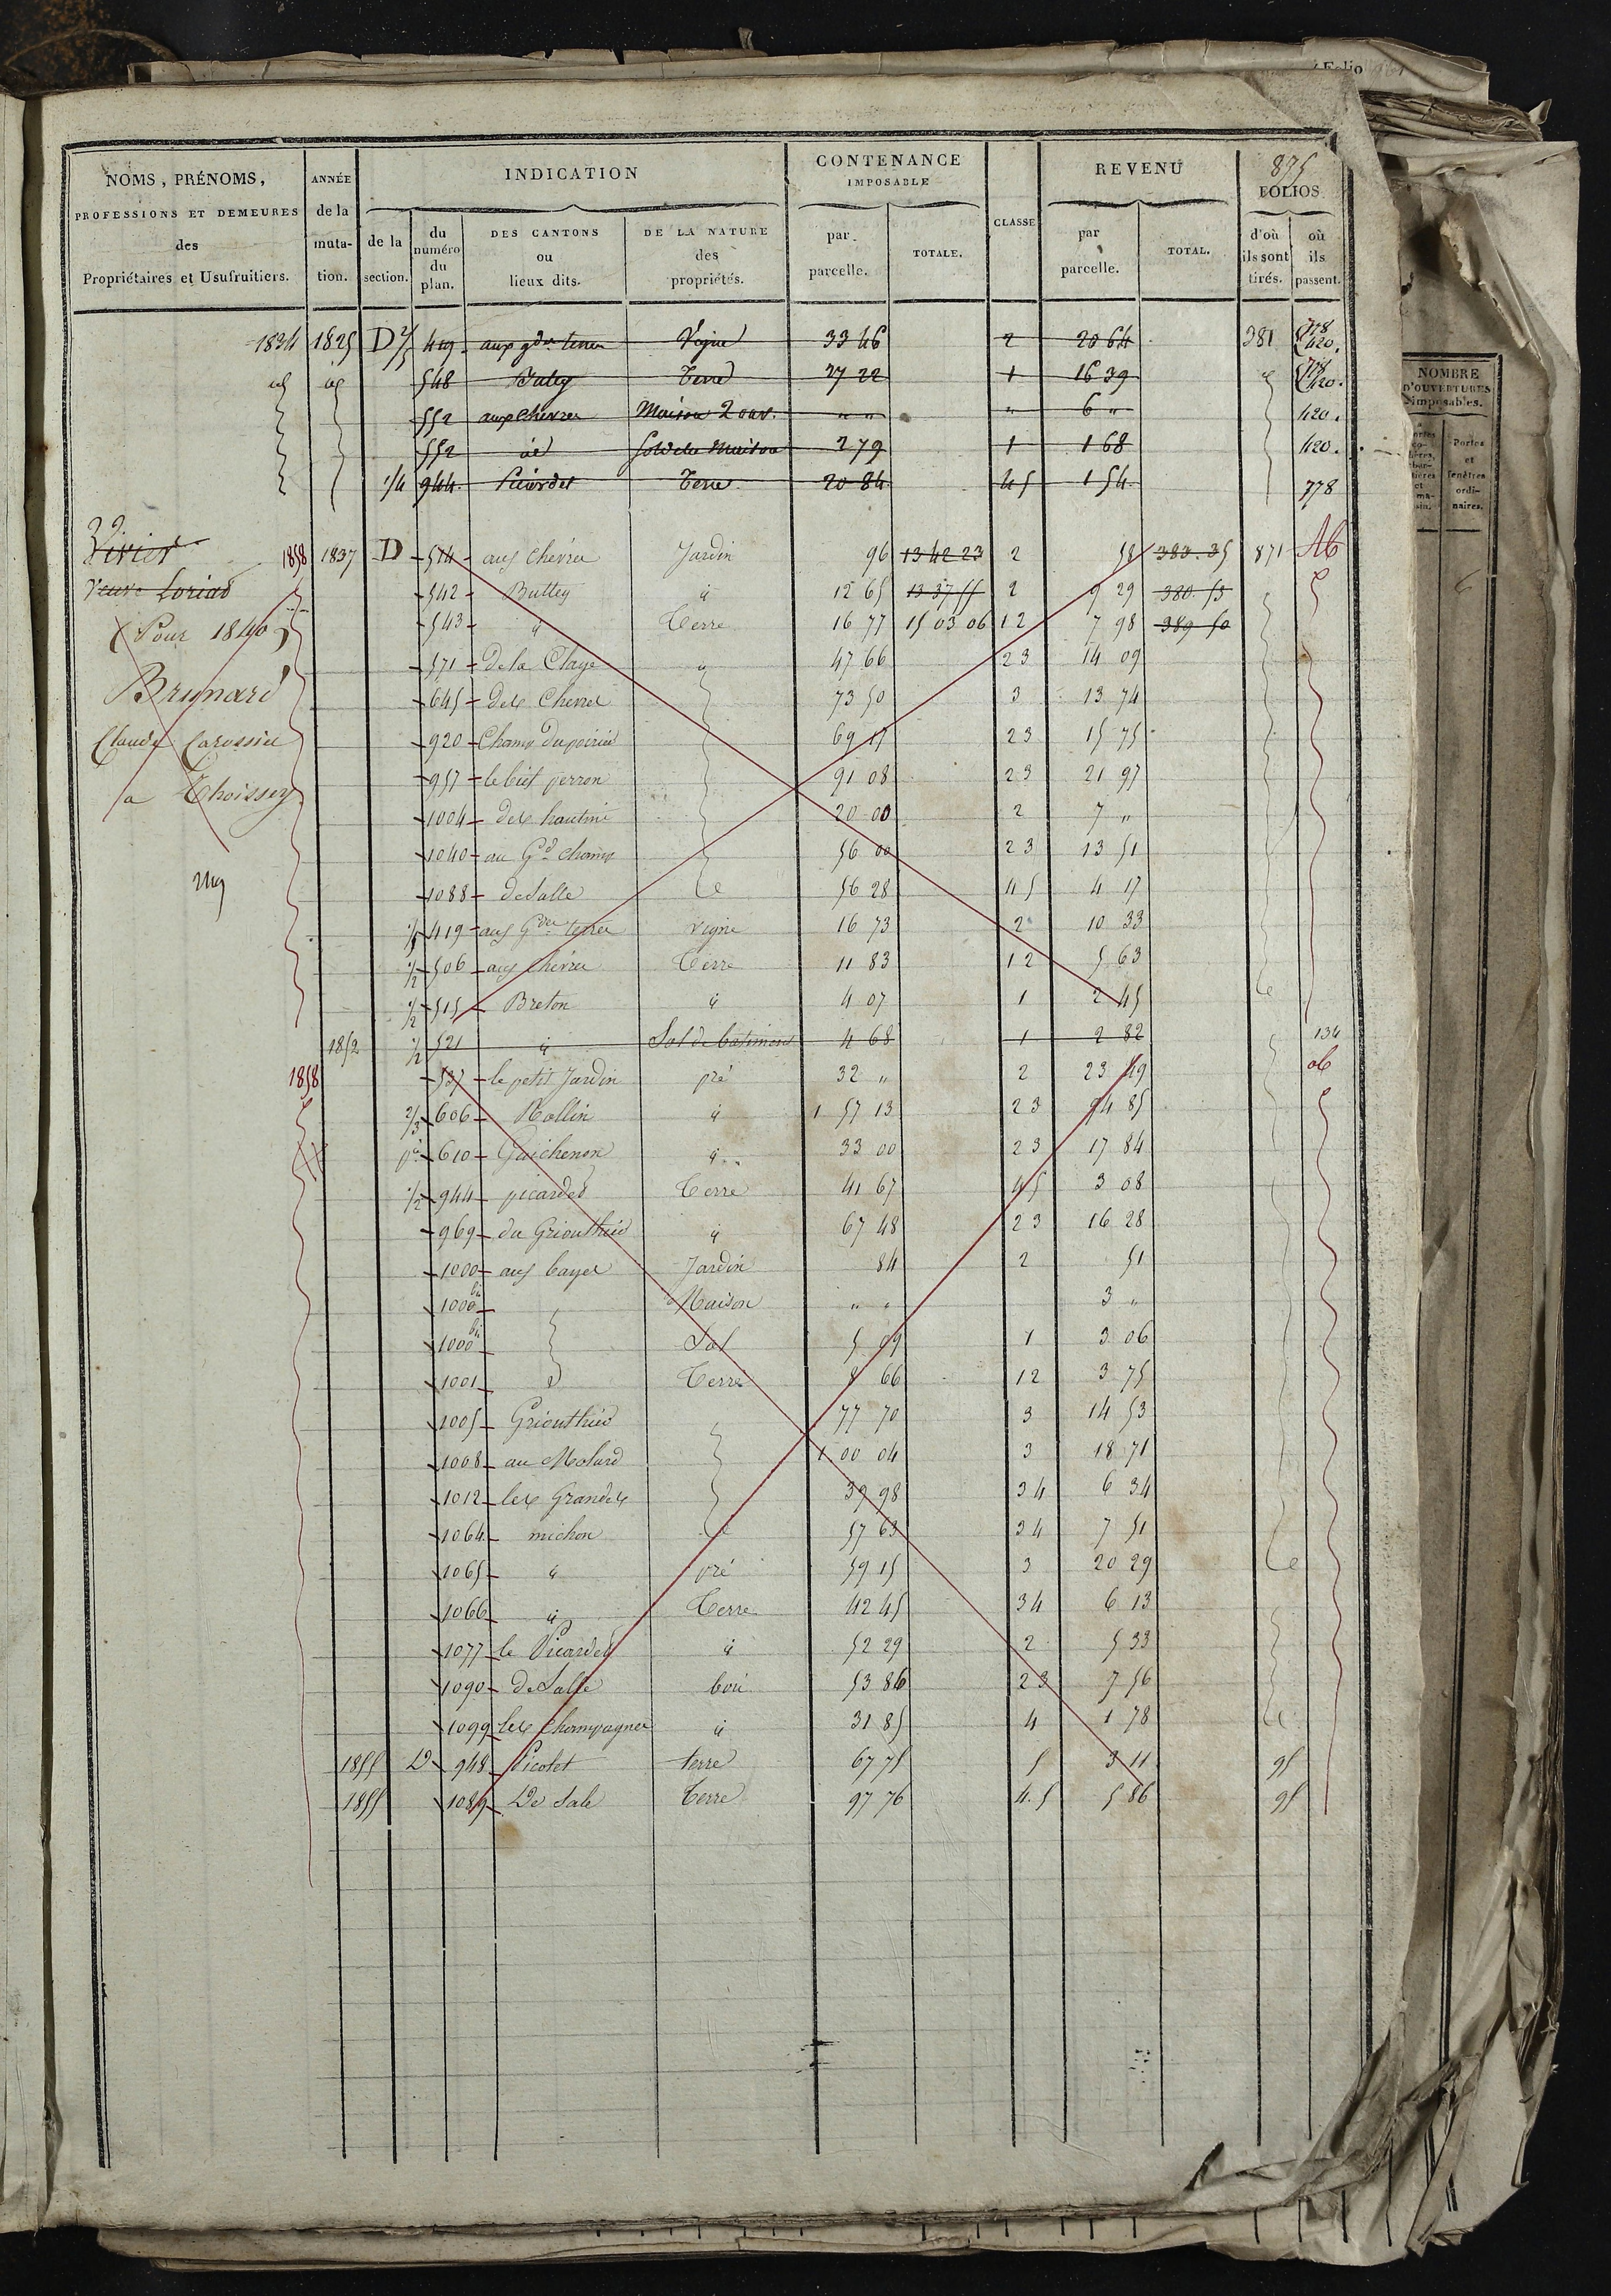 Folio
875
NOMS, PRÉNOMS, PROFESSIONS ET DEMEURES des Propriétaires et Usufruitiers.
ANNÉE de la muta-tion.
INDICATION
de la section.
du numéro du plan.
DES CANTONS ou lieux dits.
DE LA NATURE des propriétés.
CONTENANCE IMPOSABLE
par parcelle.
TOTALE.
CLASSE
REVENU
par parcelle.
TOTAL.
FOLIOS
d'où ils sont tirés.
où ils passent.
NOMBRE D'OUVERTURES imposables.
Portes et fenêtres ordi-naires.
1834 1825 D 419 aux gdes terres Vigne 33 46 2 20 64 381 778 420.
id id 548 Butey Terre 27 22 1 16 39 778 420.
552 aux chèvres Maison 2 ouv. " " " 6 " 420.
552 id Sol de la Maison 2 79 1 1 68 420.
1/4 944 Picardet Terre 20 84 45 1 54 778
Vivier 1858 1837 D 514 aux chèvres Jardin 96 13 42 23 2 58 383.35 871 Ab
Veuve Loriad 542 Buttey id 12 65 13 37 55 2 9 29 380.53
(Pour 1840) 543 id Terre 16 77 15 03 06 12 7 98 389 50
571 de la Claye id 47 66 23 14 09
Brunard 645 des Chevres 73 50 3 13 74
Claude Carossier 920 Champ du poirier 69 17 23 15 75
957 le biet perron 91 08 23 21 97
a Thoissey 1004 des hautins 20 00 2 7 "
1040 au Gd champ 56 00 23 13 51
1088 de Salle 56 28 45 4 17
419 aux Gdes terres Vigne 16 73 2 10 33
1/2 506 aux chèvres Terre 11 83 12 5 63
1/2 515 Breton id 4 07 1 2 45
1852 1/2 521 id Sol de batiment 4 68 1 2 82 134
1858 537 le petit Jardin pré 32 " 2 23 49 ab
2/3 606 Rollin id 1 57 13 23 94 85
pie 610 Guichenon id 33 00 23 17 84
1/2 944 picardet Terre 41 67 45 3 08
969 du Griouthier id 67 48 23 16 28
1000 aux bayes Jardin 84 2 51
1000 bis Maison " " 3 "
1000 bis Sol 5 09 1 3 06
1001 Terre 8 66 12 3 75
1005 Griouthier 77 70 3 14 53
1008 au Molard 1 00 04 3 18 71
1012 les Grandes 39 98 34 6 34
1064 michon 57 63 34 7 51
1065 id pré 59 15 3 20 29
1066 id Terre 42 45 34 6 13
1077 le Picardet id 52 29 2 5 33
1090 de Salle boi 53 86 23 7 56
1099 les champagnes id 31 85 4 1 78
1855 D 948 Picotet terre 67 75 5 3 11 95
1855 1089 De Sale Terre 97 76 4.5 5 86 95